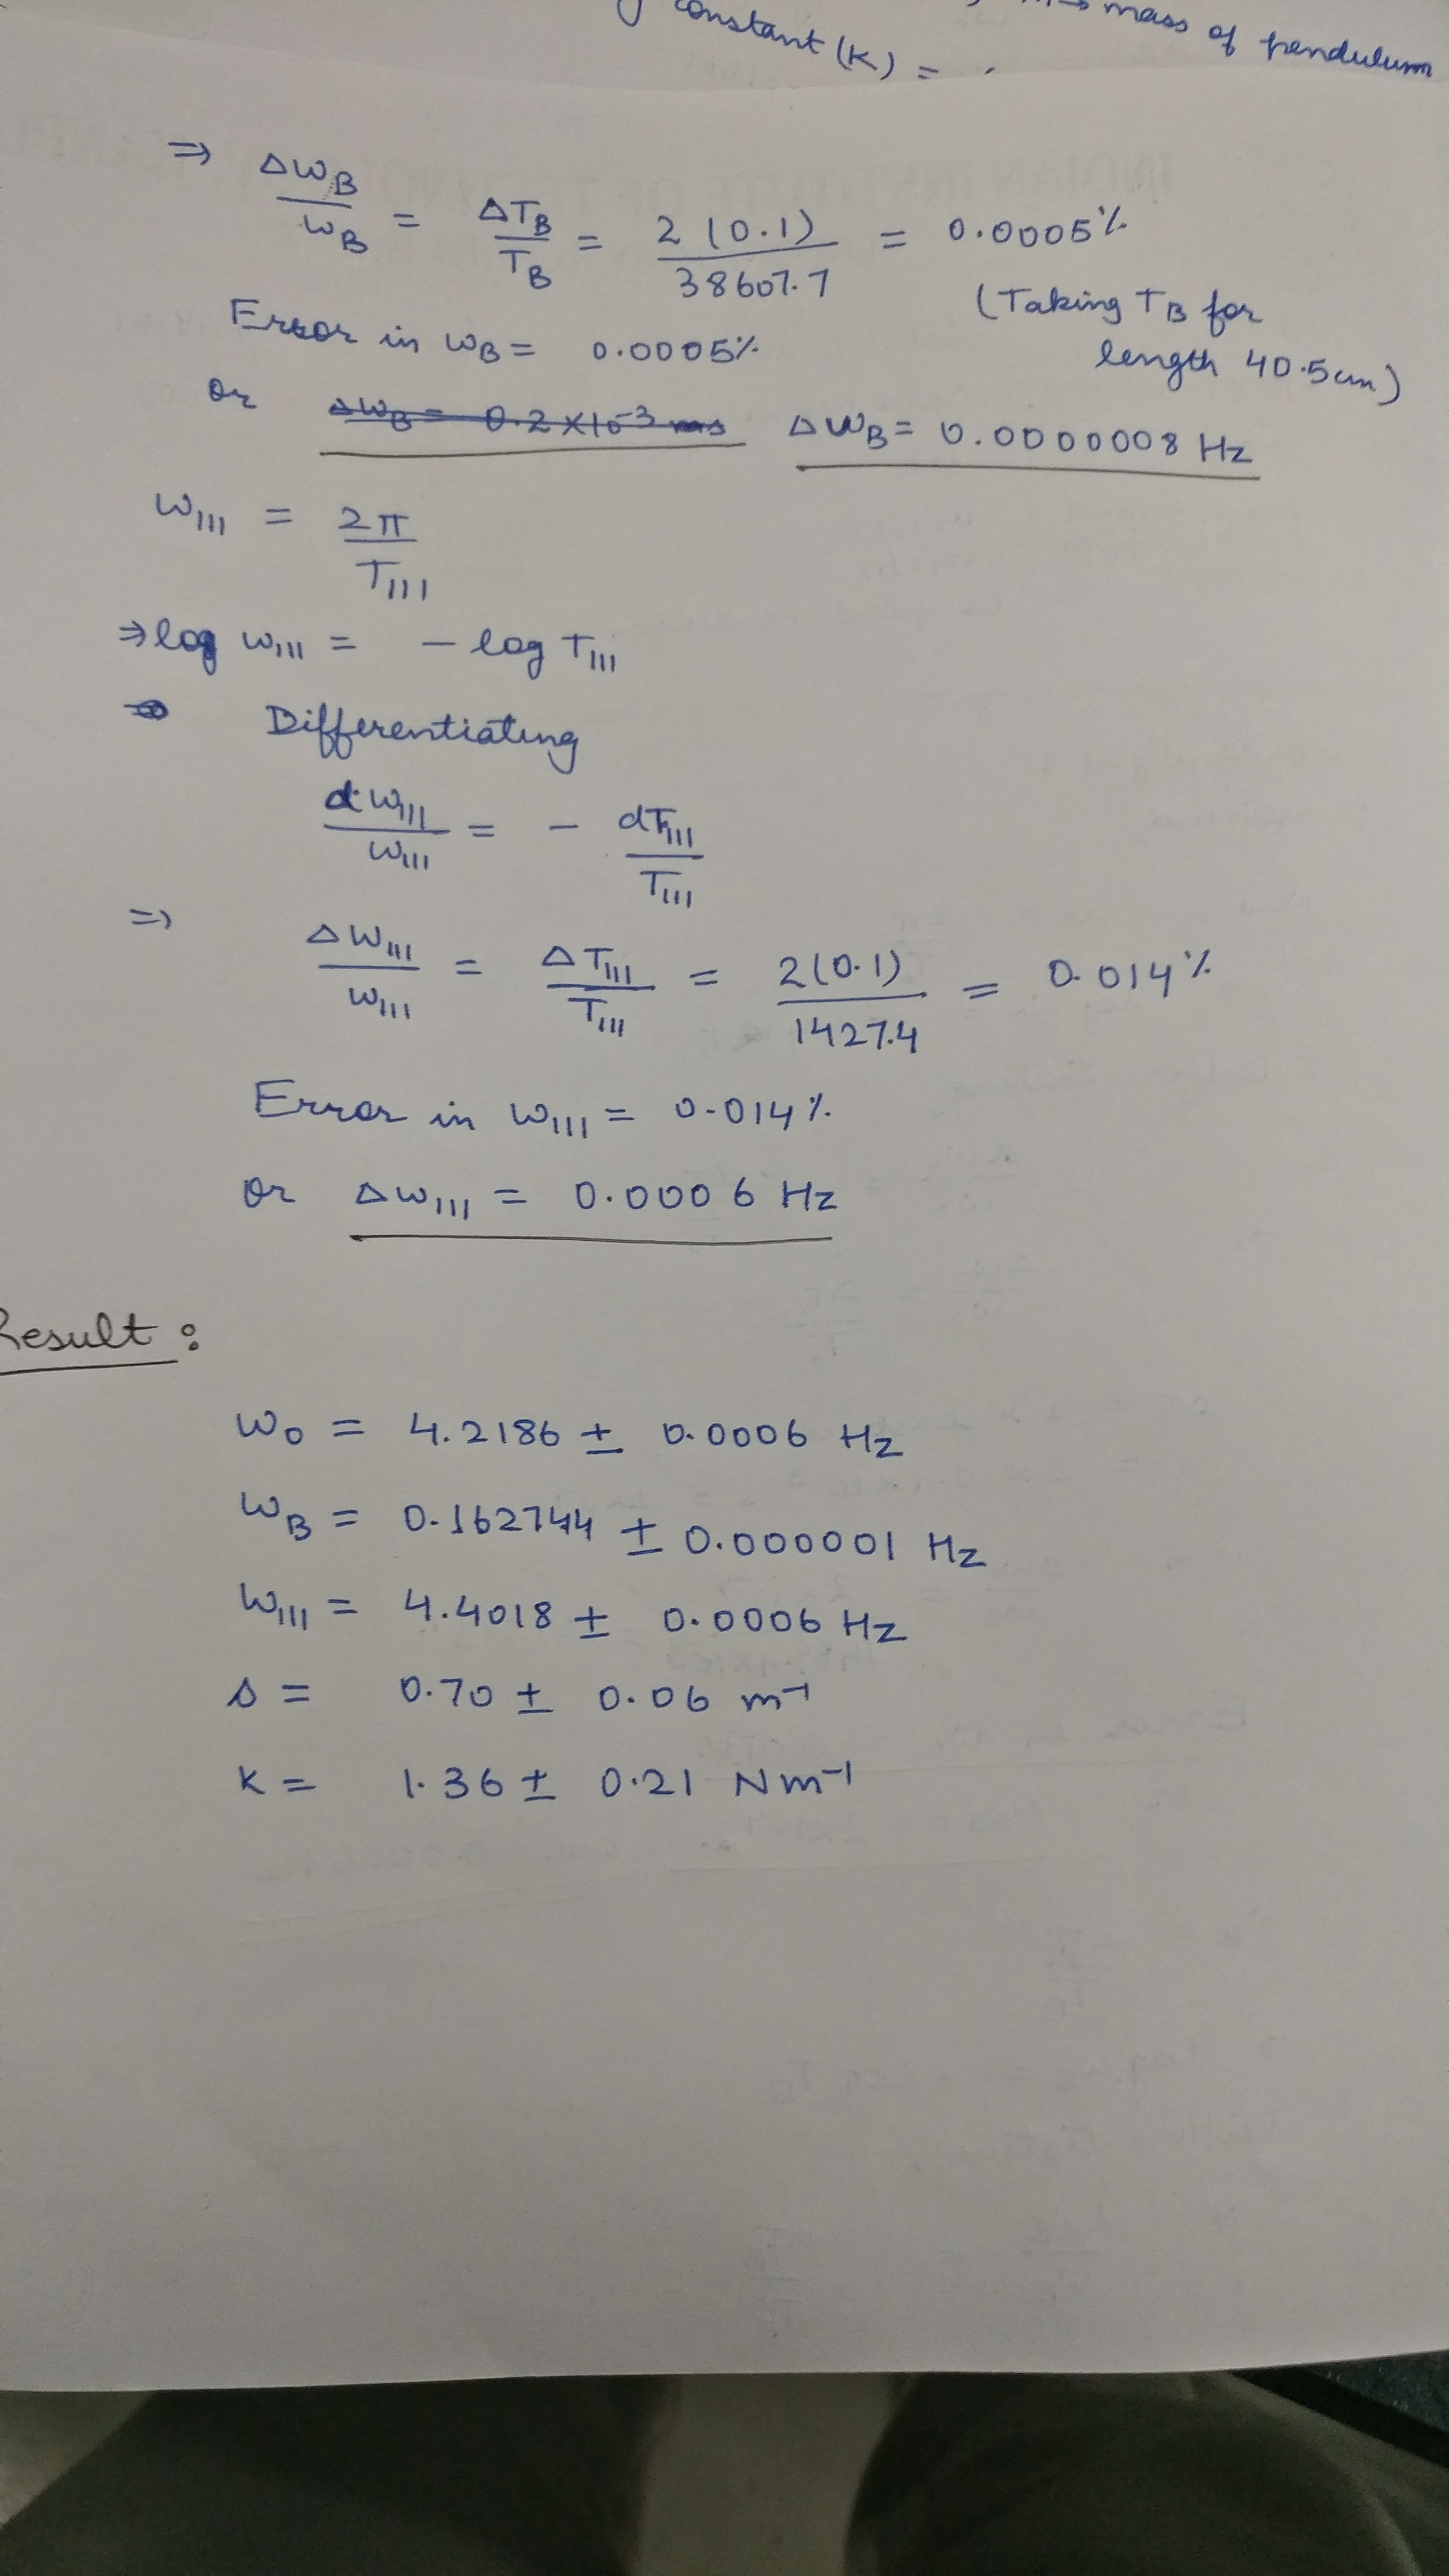 constant (K) =
mass of pendulum
⇒ ΔωB/ωB = ΔTB/TB = 2(0.1)/38607.7 = 0.0005%
(Taking TB for
length 40.5cm)
Error in ωB = 0.0005%
or ΔωB = 0.2×10⁻³ ms ΔωB = 0.0000008 Hz
ω111 = 2π/T111
⇒ log ω111 = − log T111
Differentiating
dω111/ω111 = − dT111/T111
⇒ Δω111/ω111 = ΔT111/T111 = 2(0.1)/1427.4 = 0.014%
Error in ω111 = 0.014%
or Δω111 = 0.0006 Hz
Result :
ω0 = 4.2186 ± 0.0006 Hz
ωB = 0.162744 ± 0.000001 Hz
ω111 = 4.4018 ± 0.0006 Hz
s = 0.70 ± 0.06 m⁻¹
K = 1.36 ± 0.21 Nm⁻¹